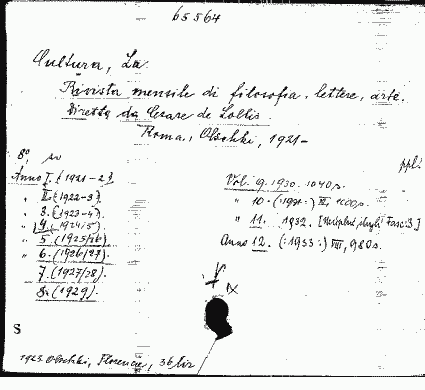 65564
Cultura, La.
Rivista mensile di filosofia, lettere, arte.
Diretta da Cesare de Lollis.
Roma, Olschki, 1921-
8°,
Anno I. (1921-22).
" II. (1922-3)
" 3. (1923-4).
" 4. (1924/5)
" 5. (1925/26)
" 6. (1926/27)
7. (1927/28).
8. (1929).
ppl.
Vol. 9. 1930. 1040 s.
" 10. (1931:)
" 11. 1932.
Anno 12. (:1933:) VIII, 980 s.
IX
S
1923. Olschki, Florence, 36 lir